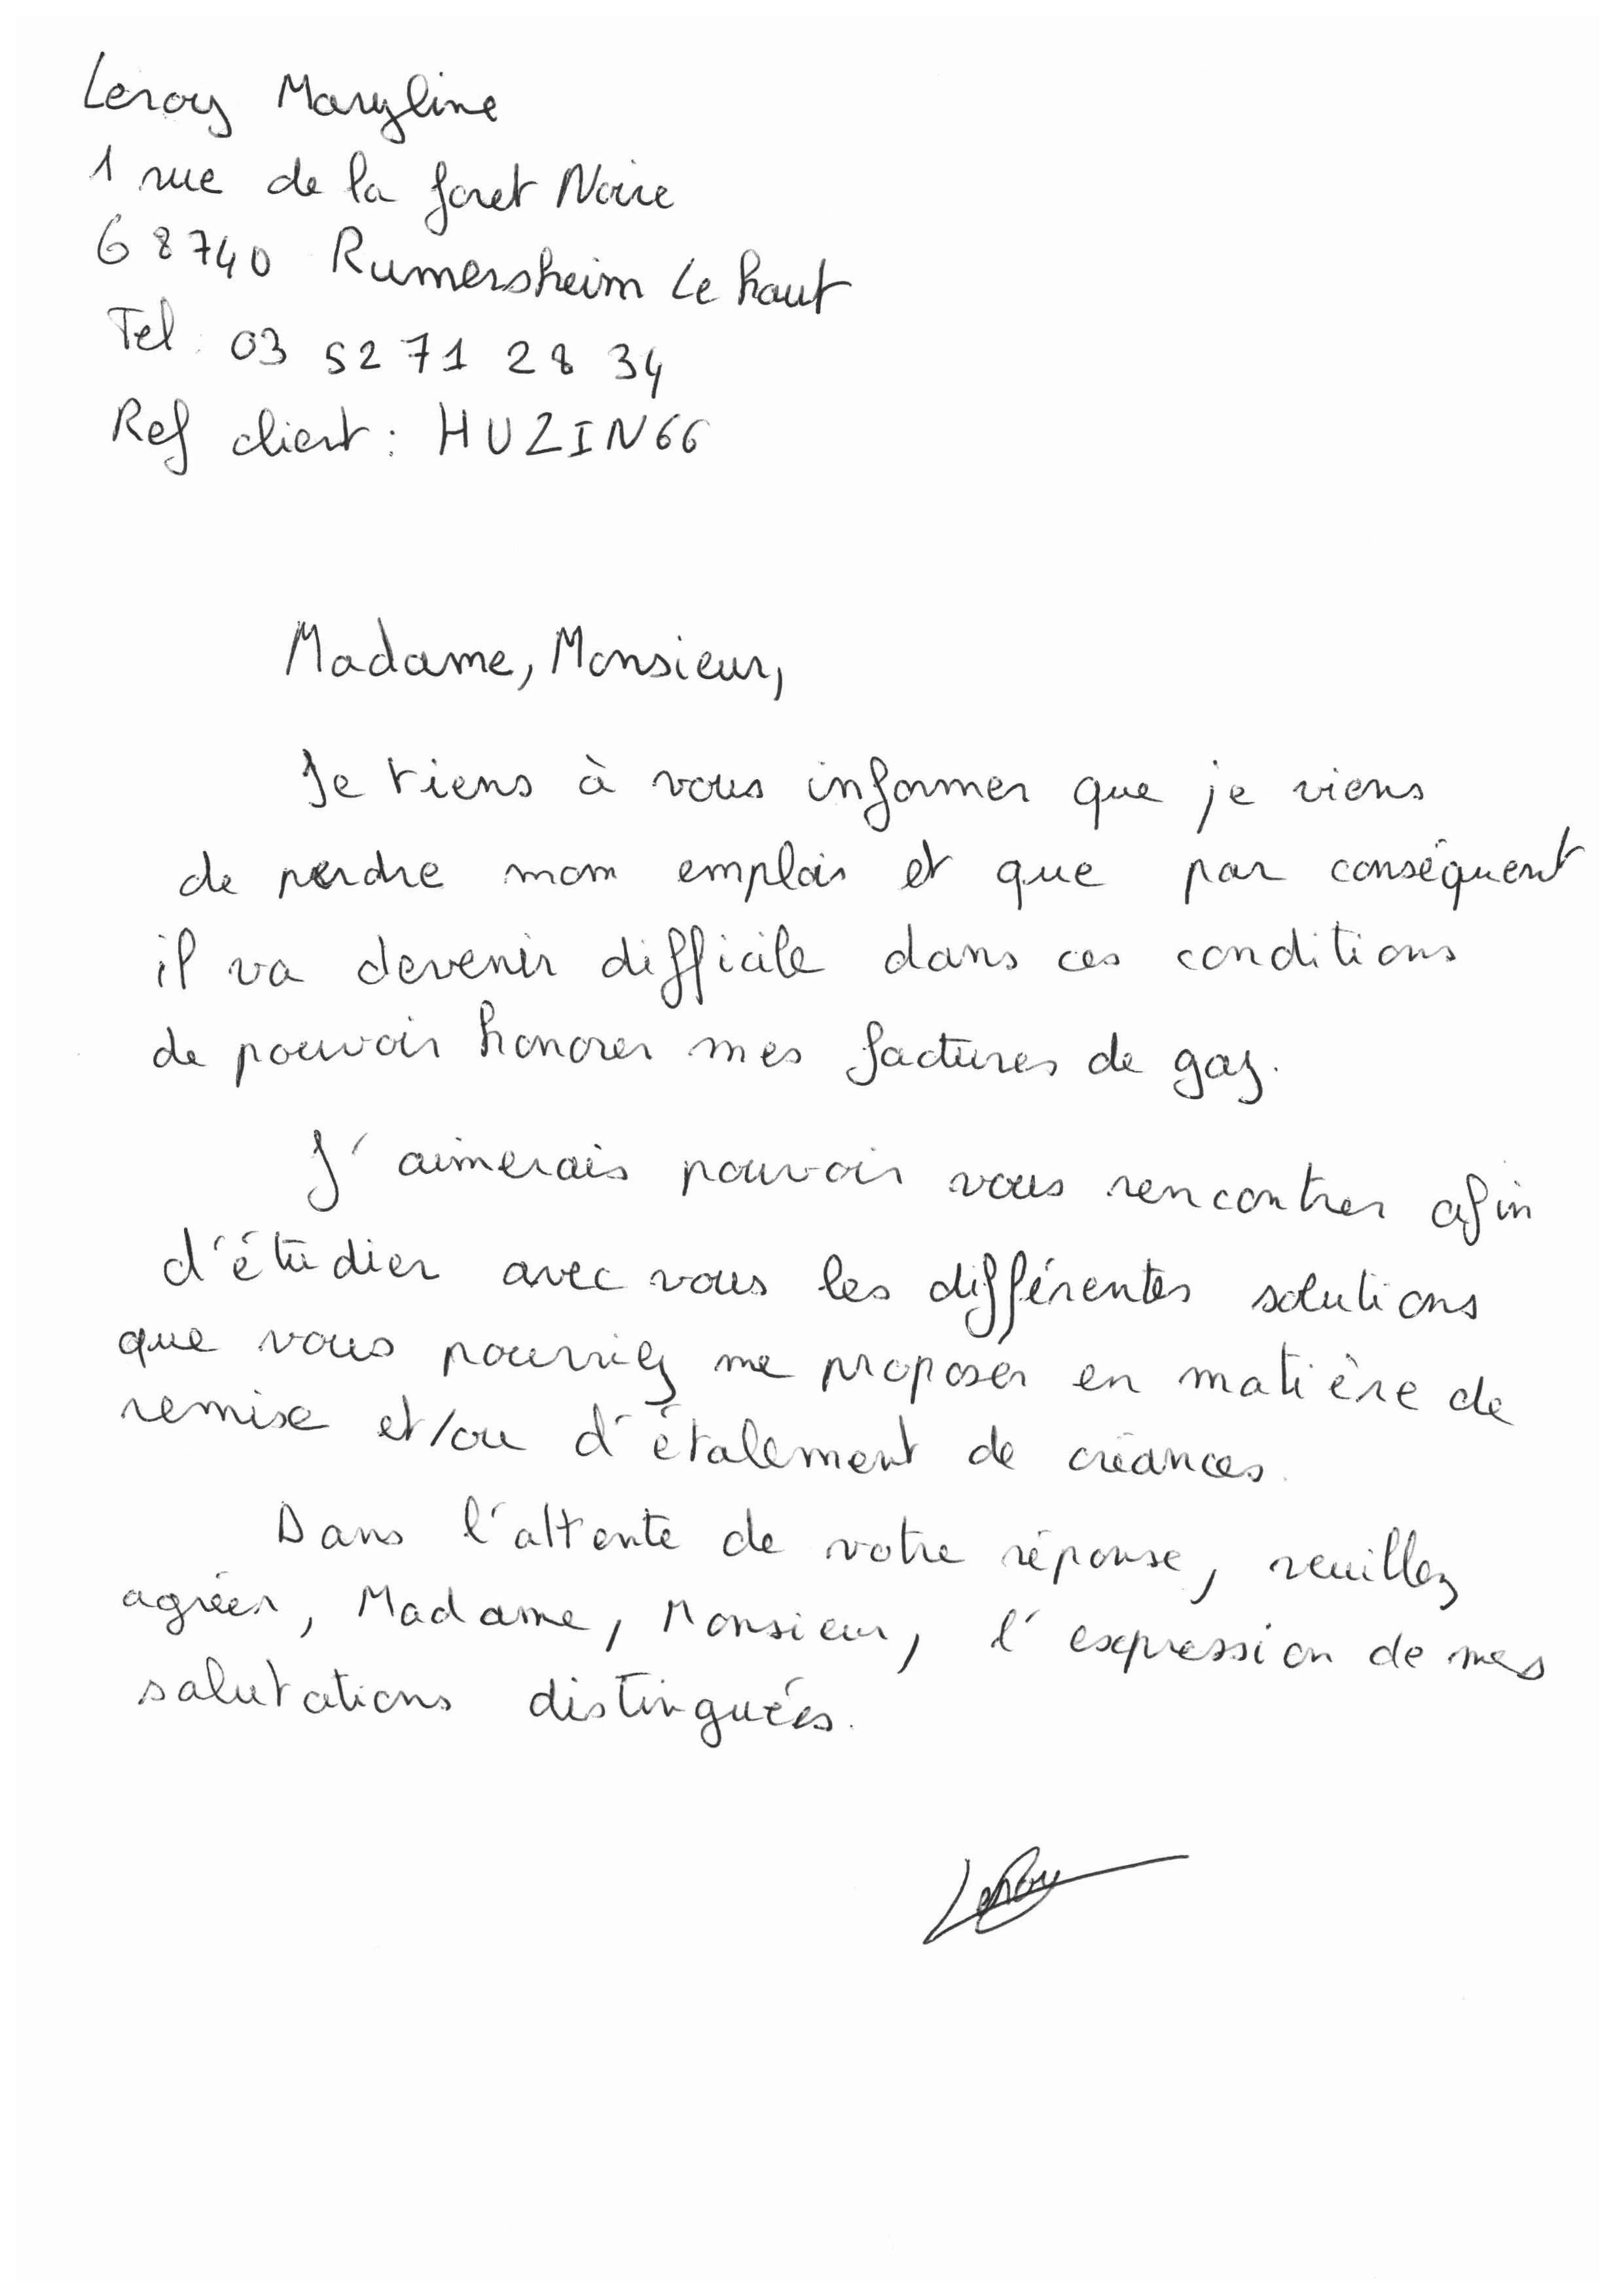 Leroy Maryline
1 rue de la foret Noire
68740 Rumersheim Le haut
Tel : 03 52 71 28 34
Ref client : HUZIN66
Madame, Monsieur,
Je tiens à vous informer que je viens
de perdre mon emploi et que par conséquent
il va devenir difficile dans ces conditions
de pouvoir honorer mes factures de gaz.
J'aimerais pouvoir vous rencontrer afin
d'étudier avec vous les différentes solutions
que vous pourriez me proposer en matière de
remise et/ou d'étalement de créances.
Dans l'attente de votre réponse, veuillez
agréer, Madame, Monsieur, l'expression de mes
salutations distinguées.
Leroy